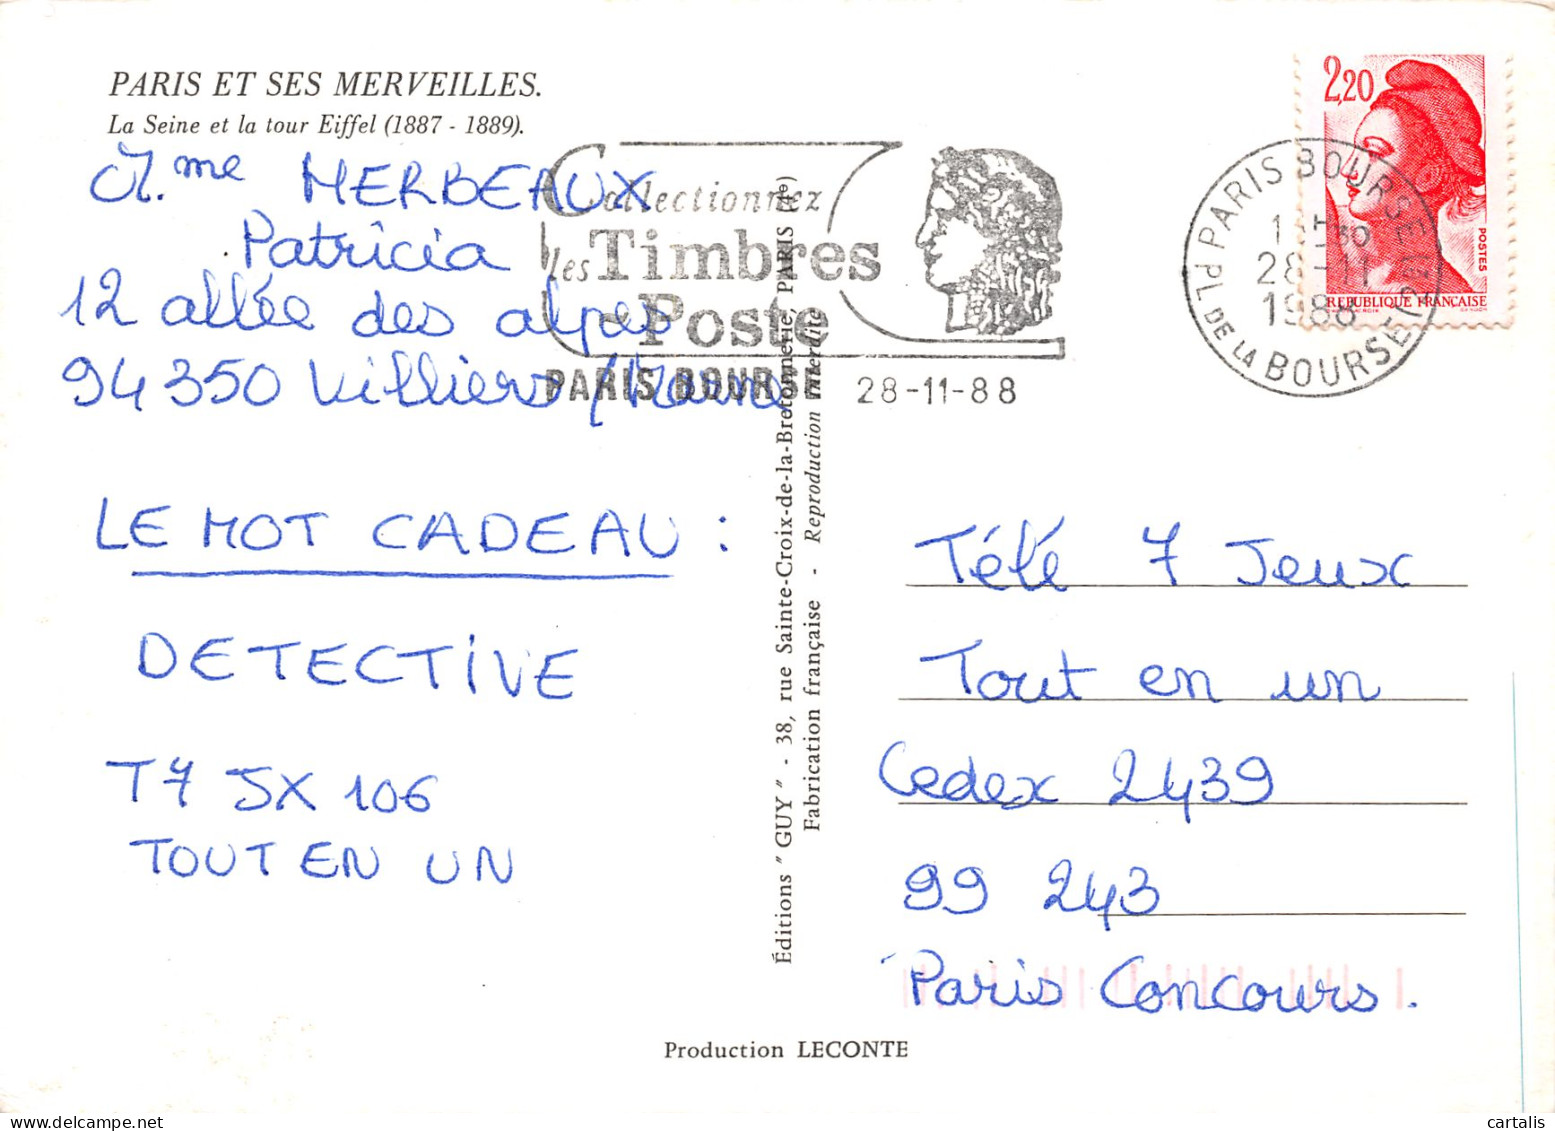 PARIS ET SES MERVEILLES.
La Seine et la tour Eiffel (1887 - 1889).
Mme MERBEAUX
Patricia
12 allée des alpes
94350 Villiers /Marne
LE MOT CADEAU :
DETECTIVE
T7 JX 106
TOUT EN UN
Collectionnez
les Timbres
Poste
PARIS BOURSE 28-11-88
2,20
POSTES
REPUBLIQUE FRANÇAISE
PARIS BOURSE
28-11
1988
PL DE LA BOURSE
Éditions "GUY" - 38, rue Sainte-Croix-de-la-Bretonnerie, PARIS (4e)
Fabrication française - Reproduction interdite
Télé 7 Jeux
Tout en un
Cedex 2439
99 243
Paris Concours.
Production LECONTE
cartalis